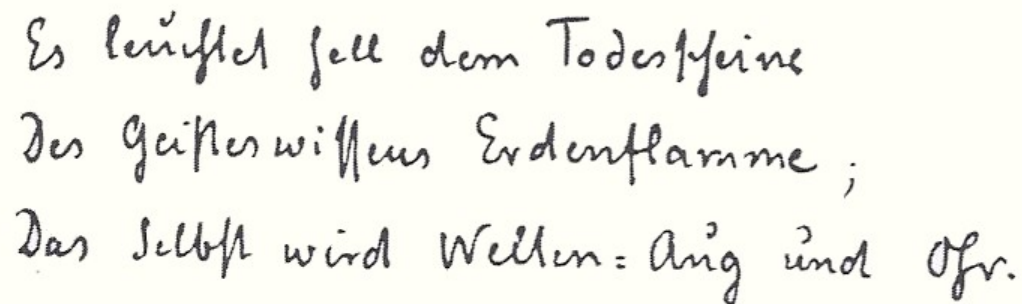 Es leuchtet hell dem Todesscheine
Des Geisteswissens Erdenflamme;
Das Selbst wird Welten=Aug und Ohr.